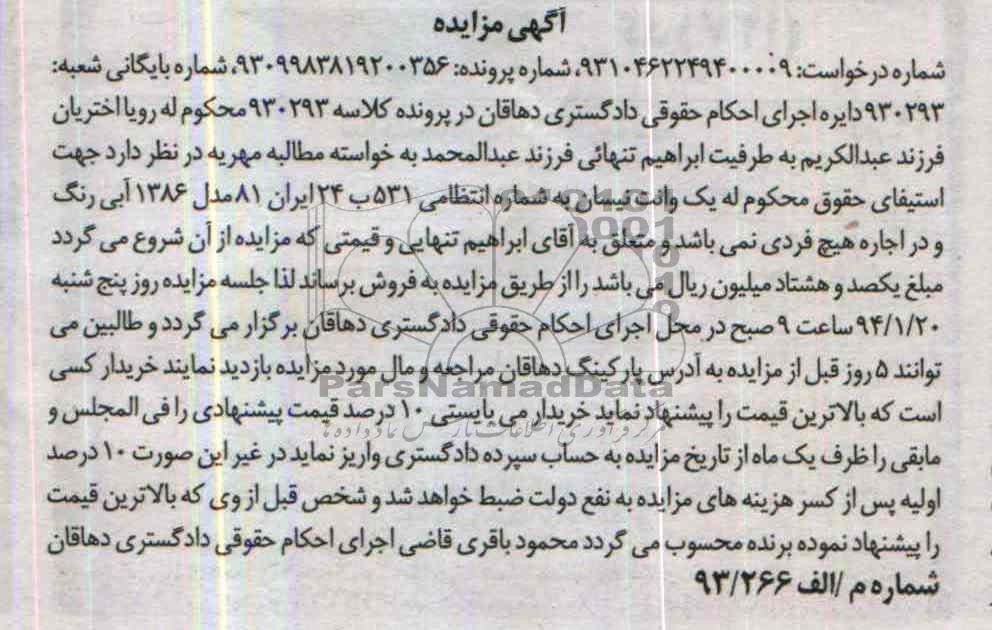 آگهی مزایده
شماره درخواست: ۹۳۱۰۴۶۲۲۴۹۴۰۰۰۰۹، شماره پرونده: ۹۳۰۹۹۸۳۸۱۹۲۰۰۳۵۶، شماره بایگانی شعبه:
۹۳۰۲۹۳ دایره اجرای احکام حقوقی دادگستری دهاقان در پرونده کلاسه ۹۳۰۲۹۳ محکوم له رویا اختریان
فرزند عبدالکریم به طرفیت ابراهیم تنهائی فرزند عبدالمحمد به خواسته مطالبه مهریه در نظر دارد جهت
استیفای حقوق محکوم له یک وانت نیسان به شماره انتظامی ۵۳۱ ب ۲۴ ایران ۸۱ مدل ۱۳۸۶ آبی رنگ
و در اجاره هیچ فردی نمی باشد و متعلق به آقای ابراهیم تنهایی و قیمتی که مزایده از آن شروع می گردد
مبلغ یکصد و هشتاد میلیون ریال می باشد را از طریق مزایده به فروش برساند لذا جلسه مزایده روز پنج شنبه
۹۴/۱/۲۰ ساعت ۹ صبح در محل اجرای احکام حقوقی دادگستری دهاقان برگزار می گردد و طالبین می
توانند ۵ روز قبل از مزایده به آدرس پارکینگ دهاقان مراجعه و مال مورد مزایده بازدید نمایند خریدار کسی
ParsNamadData
است که بالاترین قیمت را پیشنهاد نماید خریدار می بایستی ۱۰ درصد قیمت پیشنهادی را فی المجلس و
مابقی را ظرف یک ماه از تاریخ مزایده به حساب سپرده دادگستری واریز نماید در غیر این صورت ۱۰ درصد
اولیه پس از کسر هزینه های مزایده به نفع دولت ضبط خواهد شد و شخص قبل از وی که بالاترین قیمت
را پیشنهاد نموده برنده محسوب می گردد محمود باقری قاضی اجرای احکام حقوقی دادگستری دهاقان
شماره م /الف ۹۳/۲۶۶